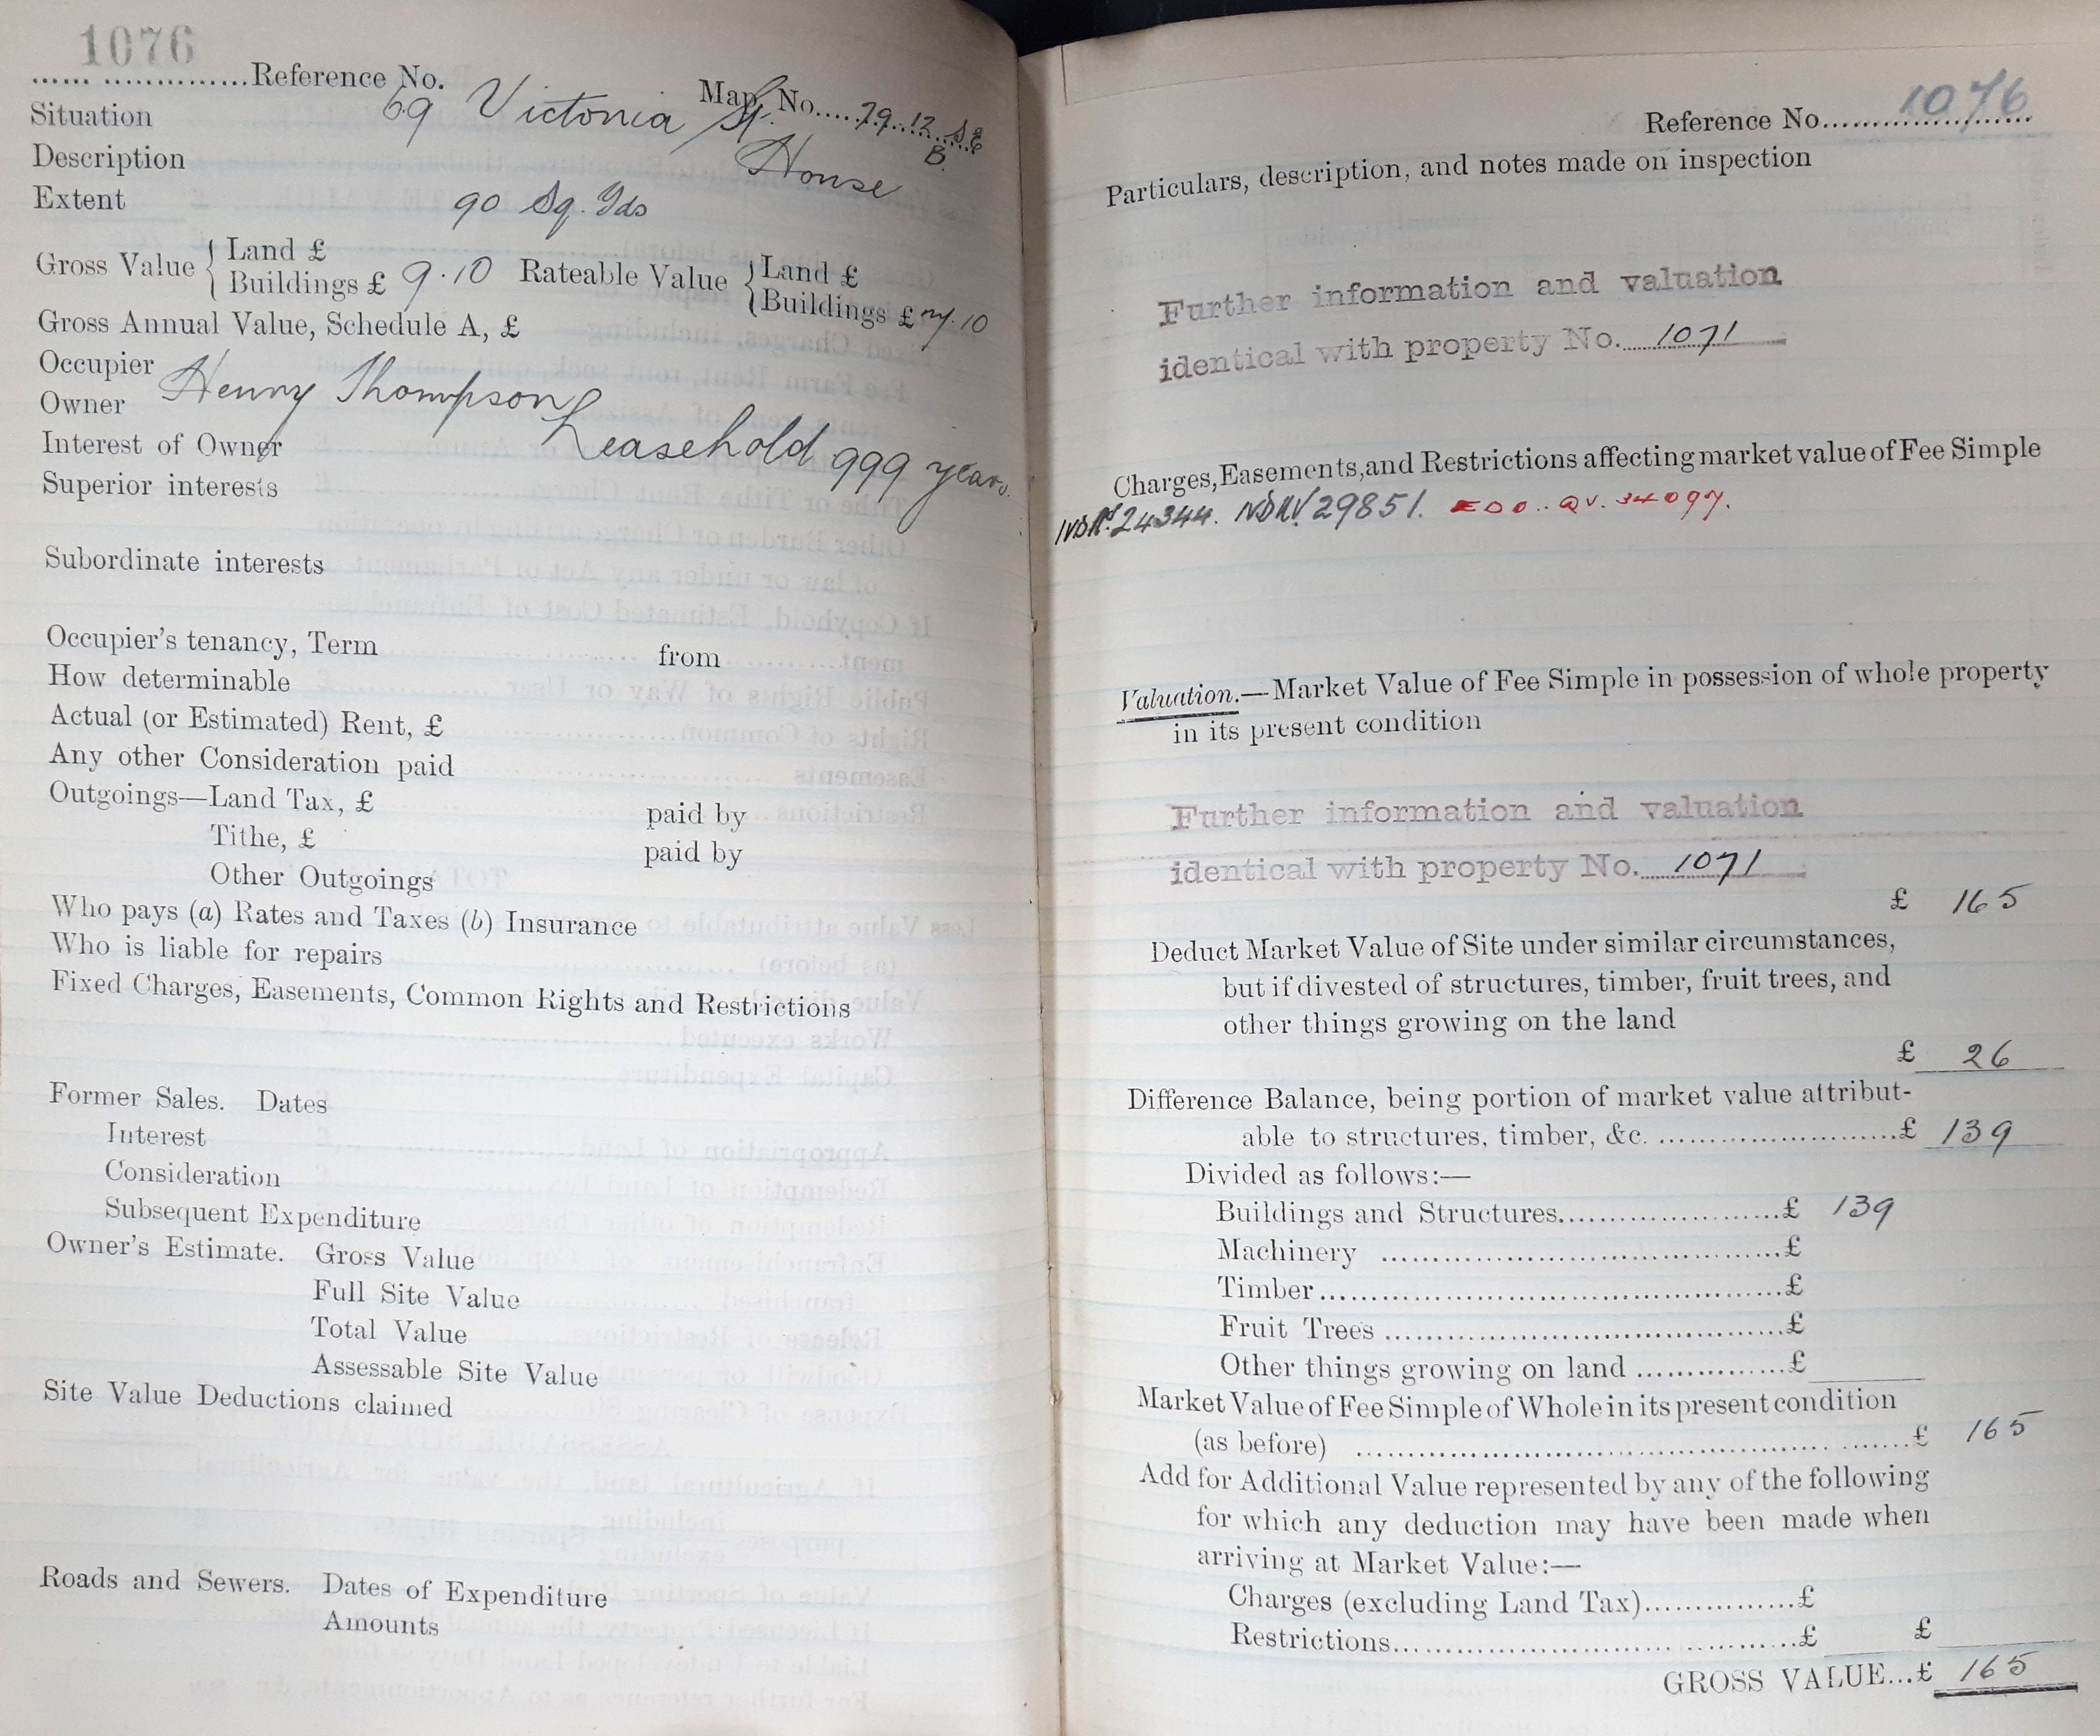 1076
Reference No.
Map No. 79.12 SE
B.
Situation 69 Victoria St.
Description House
Extent 90 Sq. Yds
Gross Value { Land £
Buildings £ 9.10 Rateable Value { Land £
Buildings £ 7.10
Gross Annual Value, Schedule A, £
Occupier
Owner Henry Thompson
Interest of Owner Leasehold 999 years.
Superior interests
Subordinate interests
Occupier's tenancy, Term from
How determinable
Actual (or Estimated) Rent, £
Any other Consideration paid
Outgoings—Land Tax, £ paid by
Tithe, £ paid by
Other Outgoings
Who pays (a) Rates and Taxes (b) Insurance
Who is liable for repairs
Fixed Charges, Easements, Common Rights and Restrictions
Former Sales. Dates
Interest
Consideration
Subsequent Expenditure
Owner's Estimate. Gross Value
Full Site Value
Total Value
Assessable Site Value
Site Value Deductions claimed
Roads and Sewers. Dates of Expenditure
Amounts
Reference No. 1076
Particulars, description, and notes made on inspection
Further information and valuation
identical with property No. 1071
Charges, Easements, and Restrictions affecting market value of Fee Simple
24344. 29851. 34097.
Valuation.—Market Value of Fee Simple in possession of whole property
in its present condition
Further information and valuation
identical with property No. 1071
£ 165
Deduct Market Value of Site under similar circumstances,
but if divested of structures, timber, fruit trees, and
other things growing on the land
£ 26
Difference Balance, being portion of market value attribut-
able to structures, timber, &c. £ 139
Divided as follows:—
Buildings and Structures £ 139
Machinery £
Timber £
Fruit Trees £
Other things growing on land £
Market Value of Fee Simple of Whole in its present condition
(as before) £ 165
Add for Additional Value represented by any of the following
for which any deduction may have been made when
arriving at Market Value:—
Charges (excluding Land Tax) £
Restrictions £ £
GROSS VALUE...£ 165